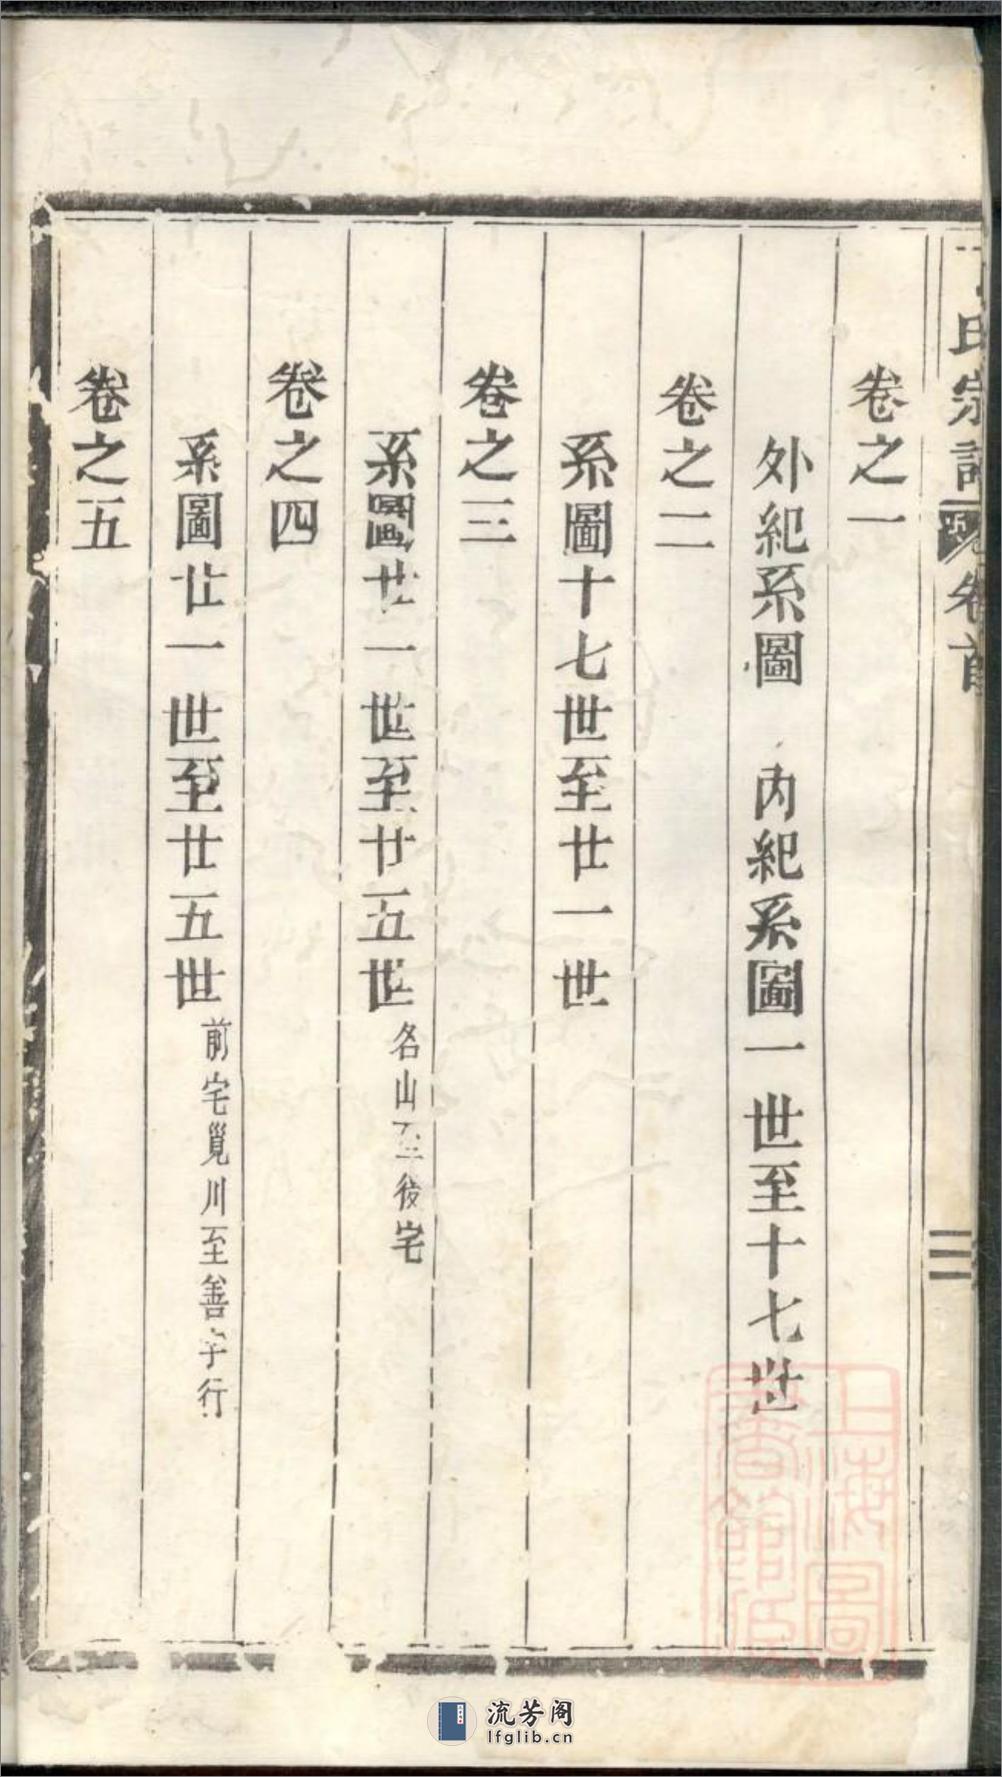 氏宗譜 卷首
二
卷之一
外紀系圖 內紀系圖一世至十七世
卷之二
系圖十七世至廿一世
卷之三
系圖廿一世至廿五世名山至後宅
卷之四
系圖廿一世至廿五世前宅覓川至善字行
卷之五
上海圖書館藏
流芳阁
lfglib.cn